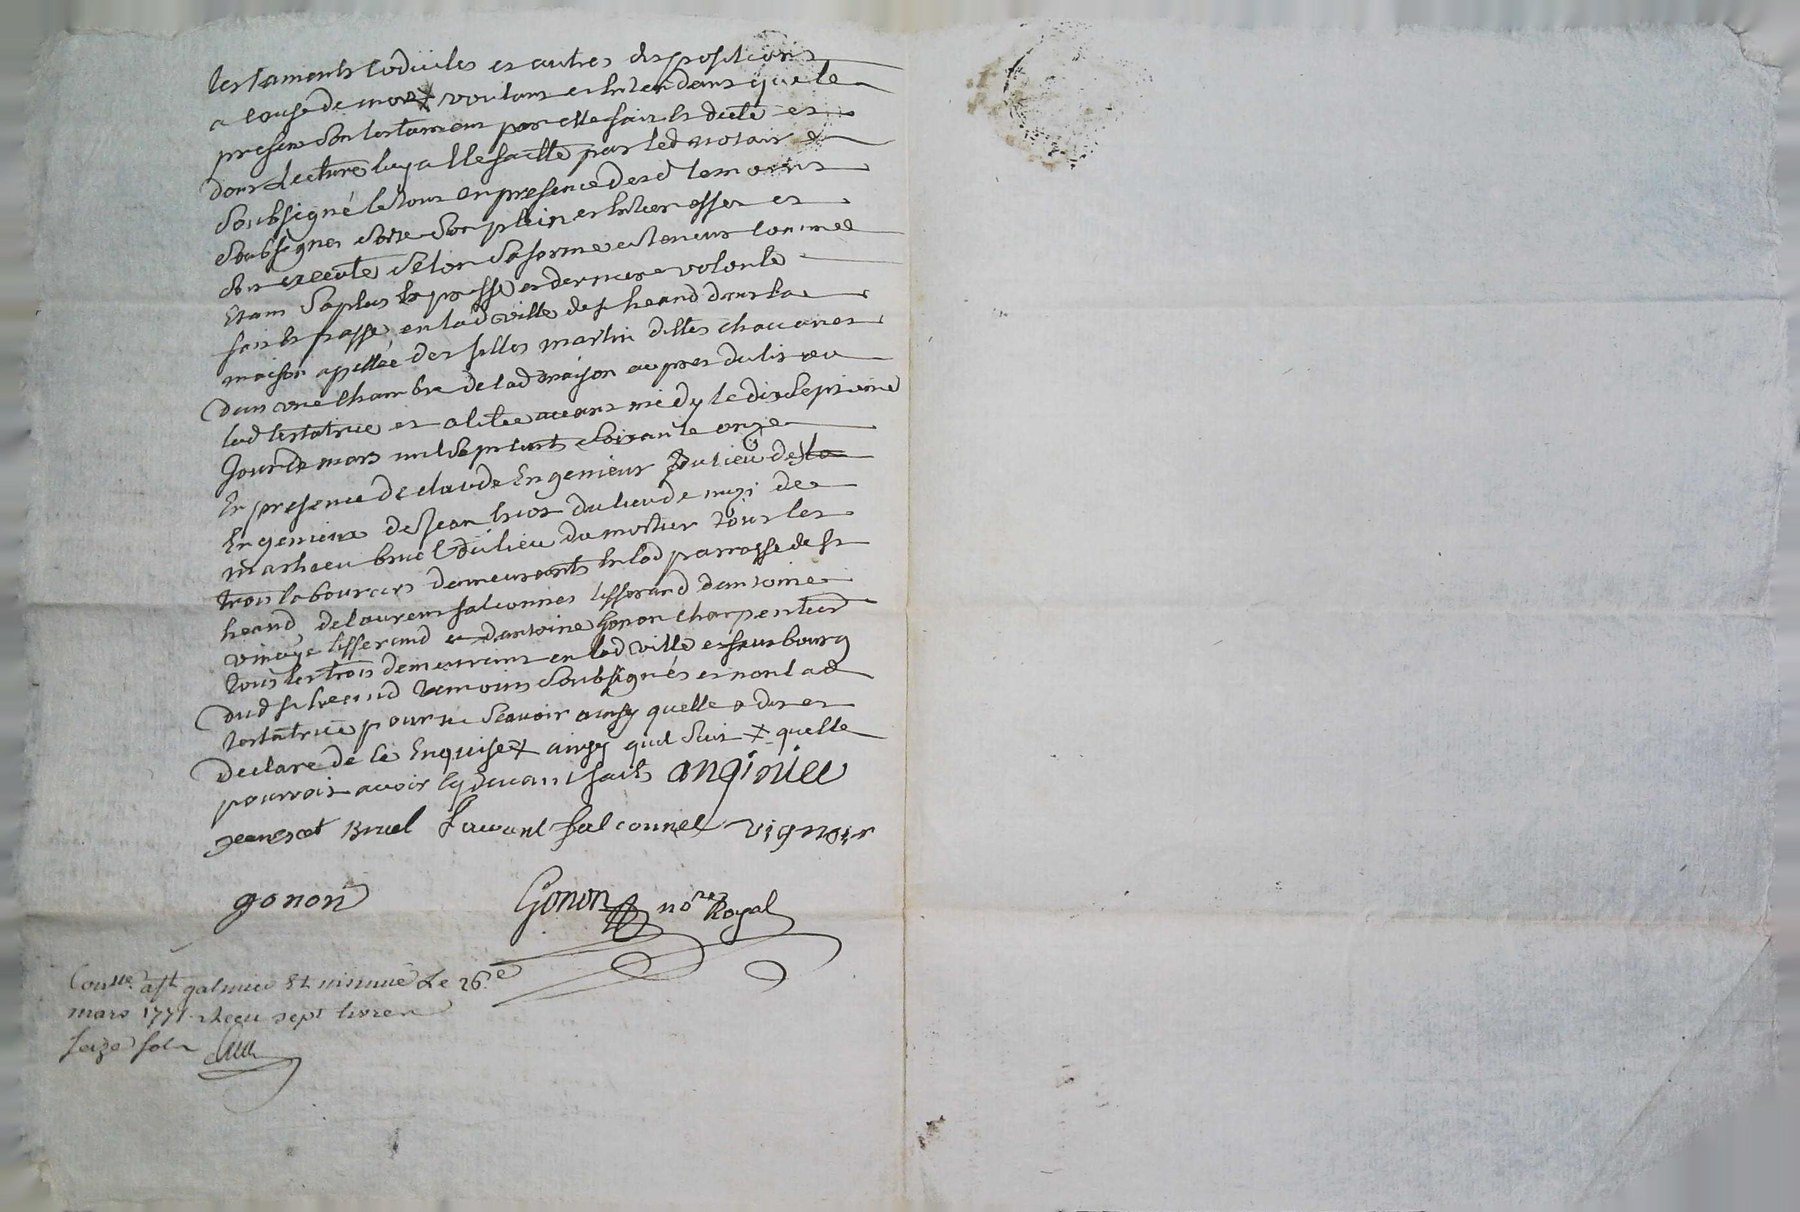 testaments Codiciles et autres dispositions
a Cause de mort voulant et Entendant que le
present son testament par elle fait Et dicté et
dont Lecture luy a Eté faitte par led notaire
soubsigné le tout en presence desd temoins
soubsignes sorte son plein et Entier effet et
soit executé selon sa forme et teneur comme
Etant sa plus Expresse et derniere volonté
fait Et passé en lad ville de st heand dans la
maison apellée des filles martin dittes
dans une chambre de lad maison aupres du lit ou
lad testatrice et alitée avant midy le dix septieme
Jour de mars mil sept cent soixante onze
En presence de claude Engenieux du lieu de
Engenieux de Jean du lieu de de
mathieu bruel du lieu du mortier tous les
trois laboureurs demeurants En lad parroisse de st
heand de laurent falconnet tisserand d'antoine
tisserand et d'antoine gonon charpentier
tous les trois demeurant en lad ville et faux bourg
dud st heand temoins soubsignés et non lad
testatrice pour ne scavoir ainsy quelle a dit et
declaré de ce Enquise ainsy quil suit quelle
pourroit avoir cy devant faits
Bruel falconnet vignoir
gonon Gonon no.re Royal
Con.lle a st galmier Et insinué Le 26.e
mars 1771 Receu sept livres
seize sols